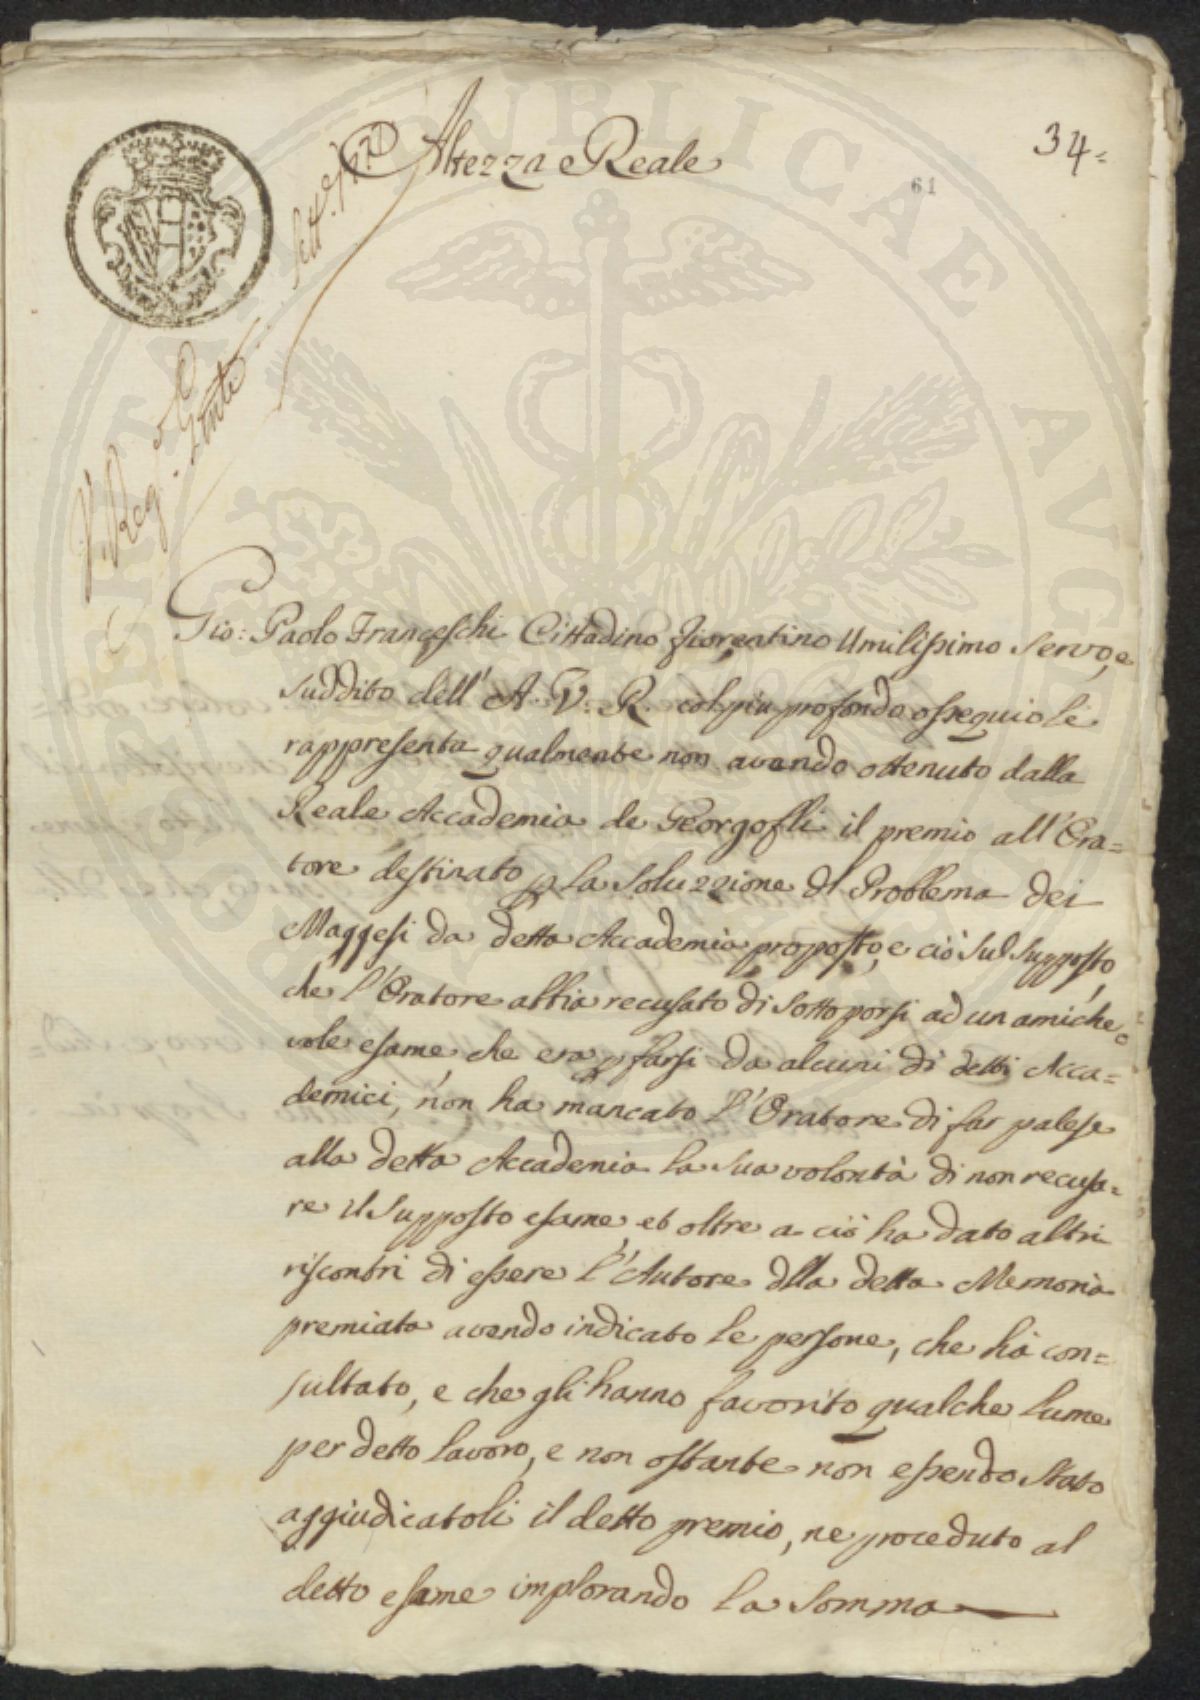 34=
61
Altezza Reale
Gio: Paolo Franceschi Cittadino fiorentino Umilissimo Servo, e
suddito dell' A. V. R. col piu profondo ossequio le
rappresenta qualmente non avendo ottenuto dalla
Reale Accademia de Georgofli il premio all' Ora=
tore destinato p la soluzzione dl Problema dei
Maggesi da detta Accademia proposto, e ciò sul supposto,
che l' Oratore abbia recusato di sottoporsi ad un amiche
vole esame, che era p farsi da alcuni di detti Acca=
demici, non ha mancato l' Oratore di far palese
alla detta Accademia la sua volontà di non recusa=
re il supposto esame, et oltre a ciò ha dato altri
riscontri di essere l' Autore dlla detta Memoria
premiata avendo indicato le persone, che hà con=
sultato, e che gli hanno favorito qualche lume
per detto lavoro, e non ostante non essendo stato
aggiudicatoli il detto premio, ne proceduto al
detto esame implorando la somma